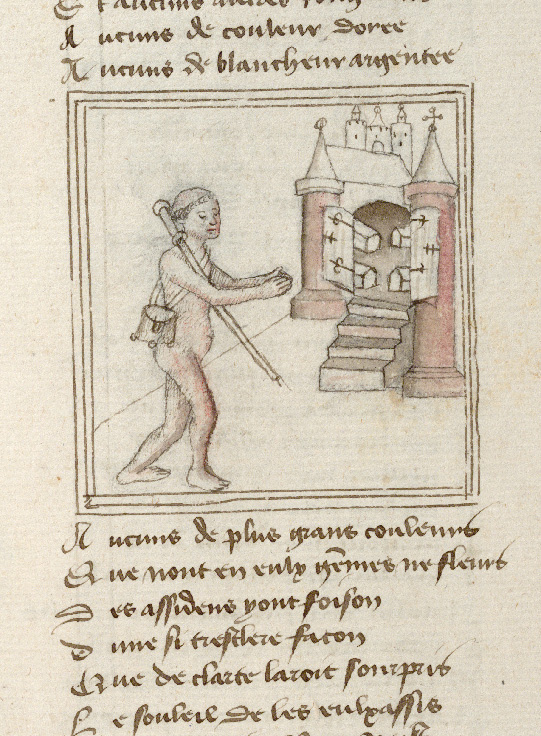 Et daucuns autres
Aucuns de couleur doree
Aucuns de blancheur argentee
Aucuns de plus grans couleurs
Que nont en eulx gemes ne fleurs
Des assidens y ont foison
Dune si tresclere facon
Que de clarte laroit sourpris
Le souleil de les eulx assis